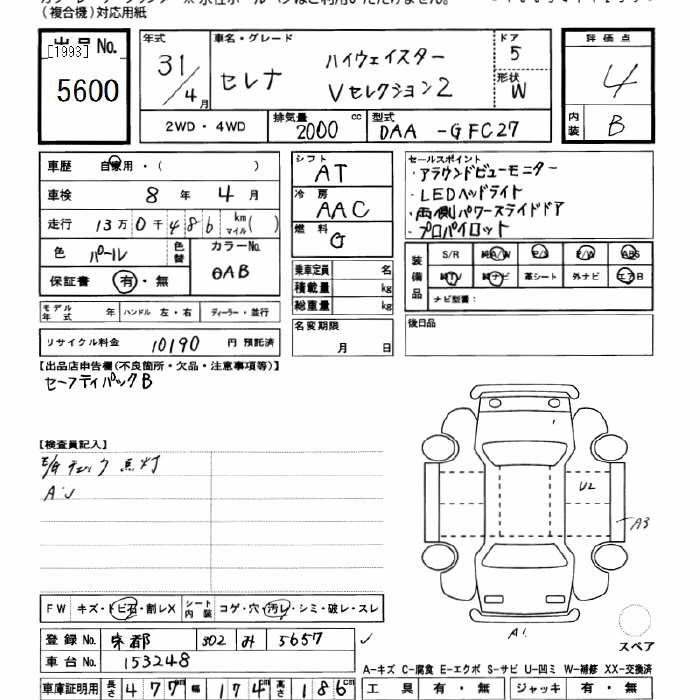 (複合機)対応用紙
出品No.
[1993]
5600
年式 31/4月
車名・グレード
セレナ ハイウェイスター
Vセレクション2
ドア 5
形状 W
評価点
4
内装 B
2WD・4WD
排気量 2000 cc
型式 DAA -GFC27
車歴 自家用・( )
車検 8年 4月
走行 13万0千486 km マイル( )
色 パール 色替
カラーNo. QAB
保証書 有・無
モデル年式 年 ハンドル 左・右 ディーラー・並行
リサイクル料金 10190 円 預託済
シフト AT
冷房 AAC
燃料 G
乗車定員 名
積載量 kg
総重量 kg
名変期限
月 日
セールスポイント
・アラウンドビューモニター
・LEDヘッドライト
・両側パワースライドドア
・プロパイロット
装備品
S/R 純A/W P/S P/W ABS
純TV 純ナビ 革シート 外ナビ エアB
ナビ型番:
後日品
【出品店申告欄(不良箇所・欠品・注意事項等)】
セーフティパックB
【検査員記入】
チェック点灯
U2
A3
A1
FW キズ・トビ石・割レX シート内装 コゲ・穴・汚レ・シミ・破レ・スレ
登録No. 京都 502 み 5657
車台No. 153248
車庫証明用 長さ 477cm 幅 174cm 高さ 186cm
スペア
A-キズ C-腐食 E-エクボ S-サビ U-凹ミ W-補修 XX-交換済
工具 有・無 ジャッキ 有・無